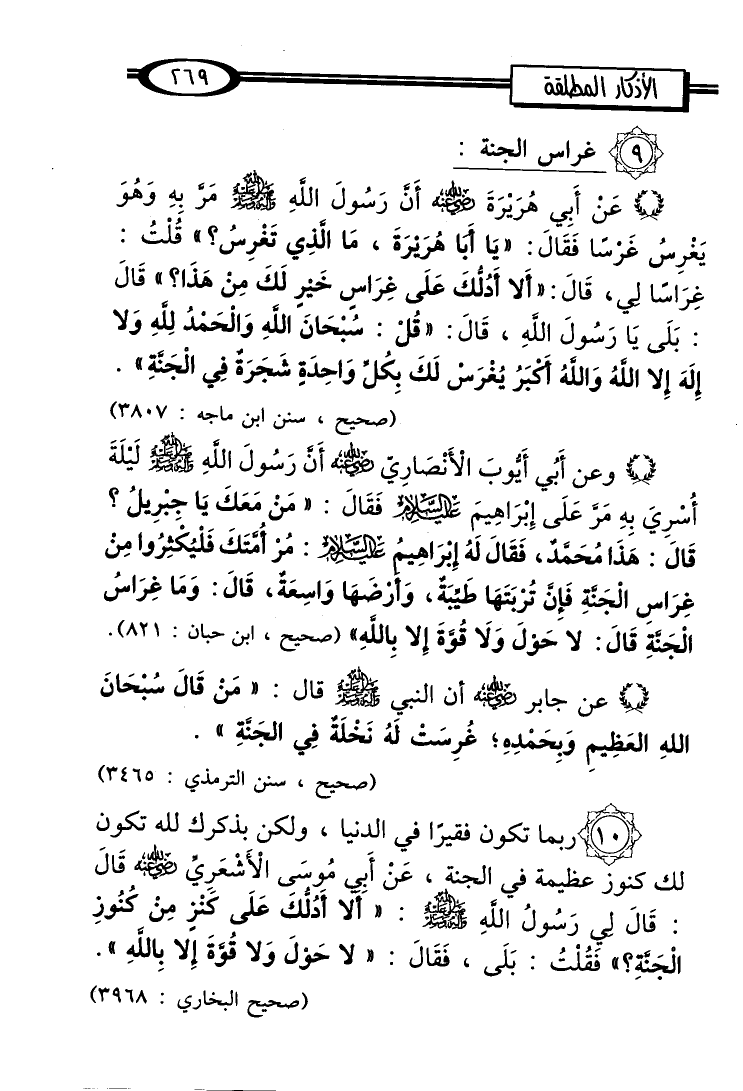 الأذكار المطلقة
٢٦٩
٩ غراس الجنة :
عَنْ أَبِي هُرَيْرَةَ رضي الله عنه أَنَّ رَسُولَ اللَّهِ ﷺ مَرَّ بِهِ وَهُوَ
يَغْرِسُ غَرْسًا فَقَالَ : «يَا أَبَا هُرَيْرَةَ ، مَا الَّذِي تَغْرِسُ؟» قُلْتُ :
غِرَاسًا لِي، قَالَ : «أَلا أَدُلُّكَ عَلَى غِرَاسٍ خَيْرٍ لَكَ مِنْ هَذَا؟» قَالَ
: بَلَى يَا رَسُولَ اللَّهِ ، قَالَ : «قُلْ : سُبْحَانَ اللَّهِ وَالْحَمْدُ لِلَّهِ وَلا
إِلَهَ إِلا اللَّهُ وَاللَّهُ أَكْبَرُ يُغْرَسْ لَكَ بِكُلِّ وَاحِدَةٍ شَجَرَةٌ فِي الْجَنَّةِ» .
(صحيح ، سنن ابن ماجه : ٣٨٠٧)
وعن أَبُي أَيُّوبَ الْأَنْصَارِيّ رضي الله عنه أَنَّ رَسُولَ اللَّهِ ﷺ لَيْلَةَ
أُسْرِيَ بِهِ مَرَّ عَلَى إِبْرَاهِيمَ عليه السلام فَقَالَ : «مَنْ مَعَكَ يَا جِبْرِيلُ ؟
قَالَ : هَذَا مُحَمَّدٌ، فَقَالَ لَهُ إِبْرَاهِيمُ عليه السلام : مُرْ أُمَّتَكَ فَلْيُكْثِرُوا مِنْ
غِرَاسِ الْجَنَّةِ فَإِنَّ تُرْبَتَهَا طَيِّبَةٌ، وَأَرْضَهَا وَاسِعَةٌ، قَالَ : وَمَا غِرَاسُ
الْجَنَّةِ قَالَ : لا حَوْلَ وَلَا قُوَّةَ إِلا بِاللَّهِ» (صحيح ، ابن حبان : ٨٢١).
عن جابر رضي الله عنه أن النبي ﷺ قال : «مَنْ قَالَ سُبْحَانَ
اللهِ العَظِيمِ وَبِحَمْدِهِ؛ غُرِسَتْ لَهُ نَخْلَةٌ فِي الجَنَّةِ» .
(صحيح ، سنن الترمذي : ٣٤٦٥)
١٠ ربما تكون فقيرًا في الدنيا ، ولكن بذكرك لله تكون
لك كنوز عظيمة في الجنة ، عَنْ أَبِي مُوسَى الْأَشْعَرِيِّ رضي الله عنه قَالَ
: قَالَ لِي رَسُولُ اللَّهِ ﷺ : «أَلَا أَدُلُّكَ عَلَى كَنْزٍ مِنْ كُنُوزِ
الْجَنَّةِ؟» فَقُلْتُ : بَلَى ، فَقَالَ : «لا حَوْلَ وَلا قُوَّةَ إِلا بِاللَّهِ» .
(صحيح البخاري : ٣٩٦٨)